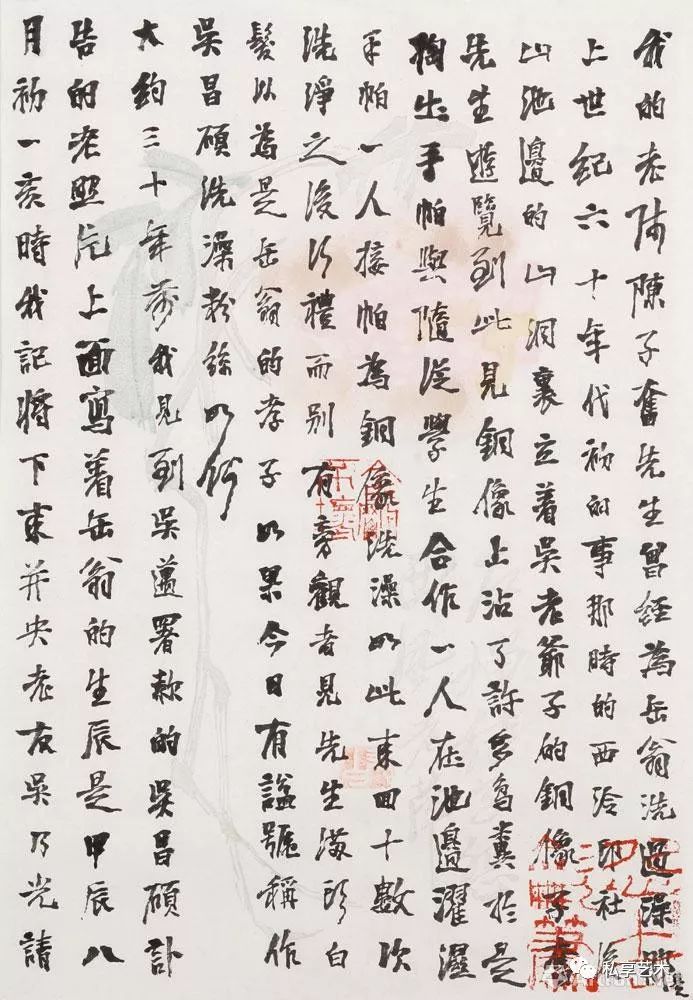 我的老師陳子奮先生曾經為缶翁洗過澡
上世紀六十年代初的事那時的西泠印社後
山池邊的山洞裏立着吳老爺子的銅像子奮
先生遊覽到此見銅像上沾了許多鳥糞於是
掏出手帕與隨從學生合作一人在池邊濯濕
手帕一人接帕為銅像洗澡如此來回十數次
洗淨之後行禮而別有旁觀者見先生滿頭白
髮以為是缶翁的孝子如果今日有謚號稱作
吳昌碩洗澡粉絲如何
大約三十年前我見到吳邁署款的吳昌碩訃
告的老照片上面寫着缶翁的生辰是甲辰八
月初一亥時我記將下來并央老友吳乃光請
私享艺术